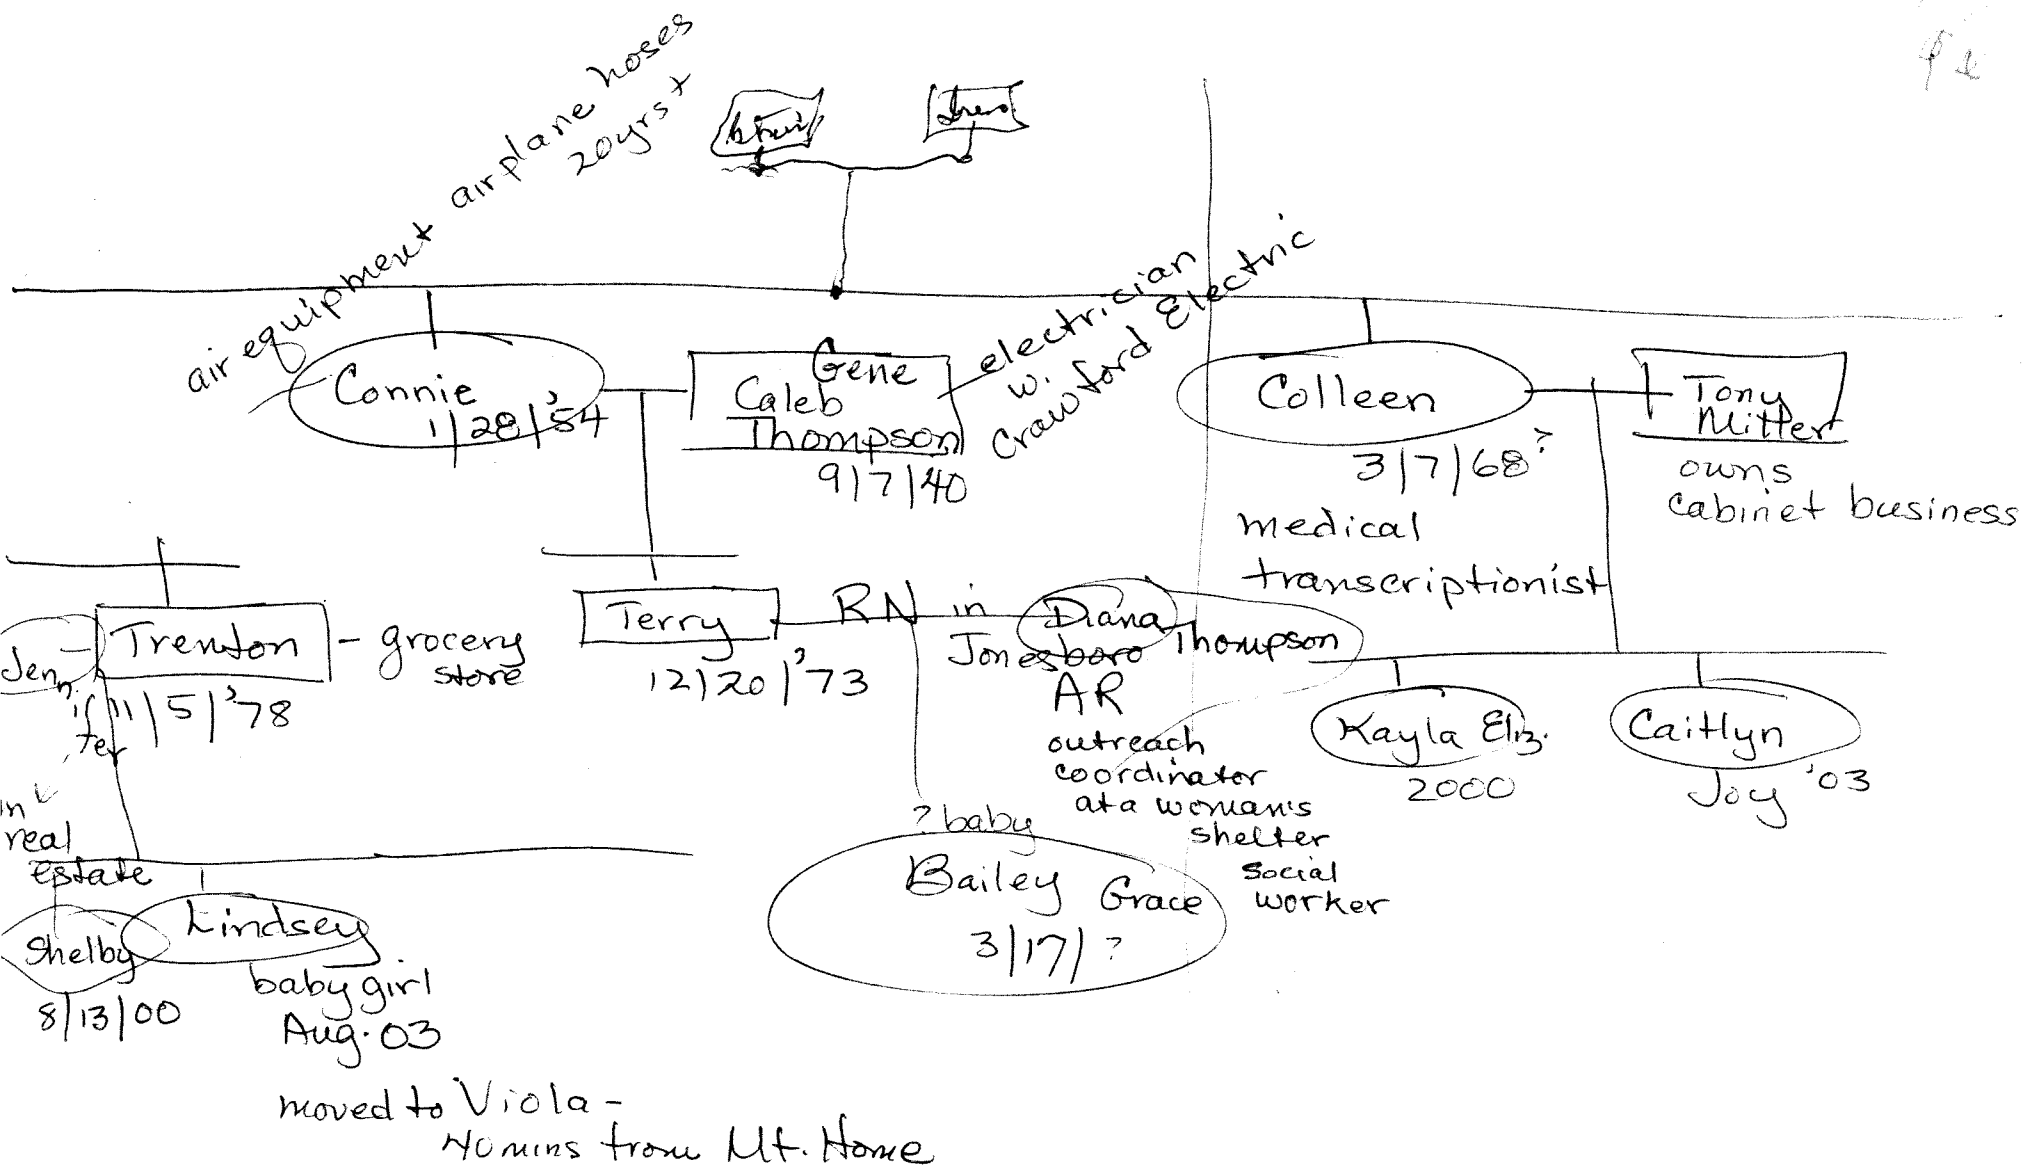 air equipment airplane hoses
20yrs +
Connie
1/28/'54
Gene
Caleb
Thompson
9/7/40
electrician
w.
Crawford Electric
Colleen
3/7/68?
medical
transcriptionist
Tony
Mitter
owns
cabinet business
Jennifer
in
real
estate
Trenton
11/5/'78
- grocery
store
Terry
12/20/'73
RN in
Jonesboro
AR
Diana
Thompson
outreach
coordinator
at a woman's
shelter
social
worker
Kayla Eliz.
2000
Caitlyn
Joy '03
? baby
Bailey Grace
3/17/?
Shelby
8/13/00
Lindsey
baby girl
Aug. 03
moved to Viola -
40 mins from Mt. Home